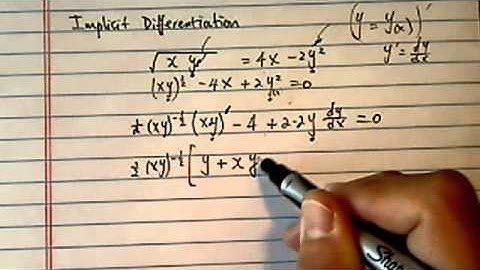 Implicit Differentiation
(y = y(x))'
√(x y) = 4x - 2y²
y' = dy/dx
(xy)^½ - 4x + 2y² = 0
½ (xy)^-½ (xy)' - 4 + 2·2y dy/dx = 0
½ (xy)^-½ [ y + x y
Sharpie